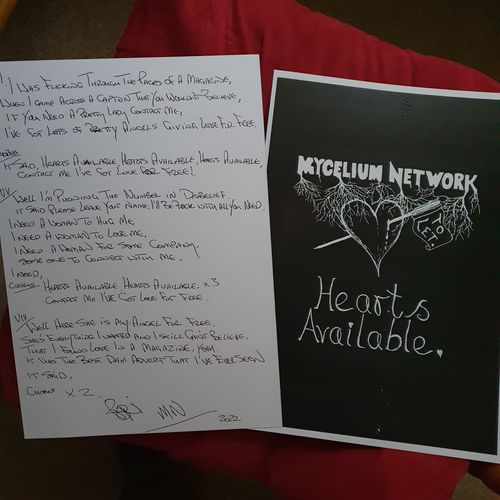 V1/ I WAS FLICKING THROUGH THE PAGES OF A MAGAZINE,
WHEN I CAME ACROSS A CAPTION THAT YOU WOULDN'T BELIEVE,
IF YOU NEED A PRETTY LADY CONTACT ME,
I'VE GOT LOTS OF PRETTY ANGELS GIVING LOVE FOR FREE.
CHORUS
IT SAID, HEARTS AVAILABLE, HEARTS AVAILABLE, HEARTS AVAILABLE,
CONTACT ME I'VE GOT LOVE FOR FREE!
WELL I'M PHONING THE NUMBER IN DISBELIEF.
IT SAID PLEASE LEAVE YOUR NAME, I'LL BE BACK WITH ALL YOU NEED.
I NEED A WOMAN TO HUG ME,
I NEED A WOMAN TO LOVE ME,
I NEED A WOMAN FOR SOME COMPANY.
SOME ONE TO CONNECT WITH ME.
I NEED,
CHORUS HEARTS AVAILABLE HEARTS AVAILABLE. x3
CONTACT ME I'VE GOT LOVE FOR FREE.
WELL HERE SHE IS MY ANGEL FOR FREE,
SHE'S EVERYTHING I WANTED AND I STILL CAN'T BELIEVE,
THAT I FOUND LOVE IN A MAGAZINE, YEAH.
IT WAS THE BEST DAM ADVERT THAT I'VE EVER SEEN
IT SAID,
CHORUS x 2.
MN
2022
MYCELIUM NETWORK
TO LET
Hearts
Available.